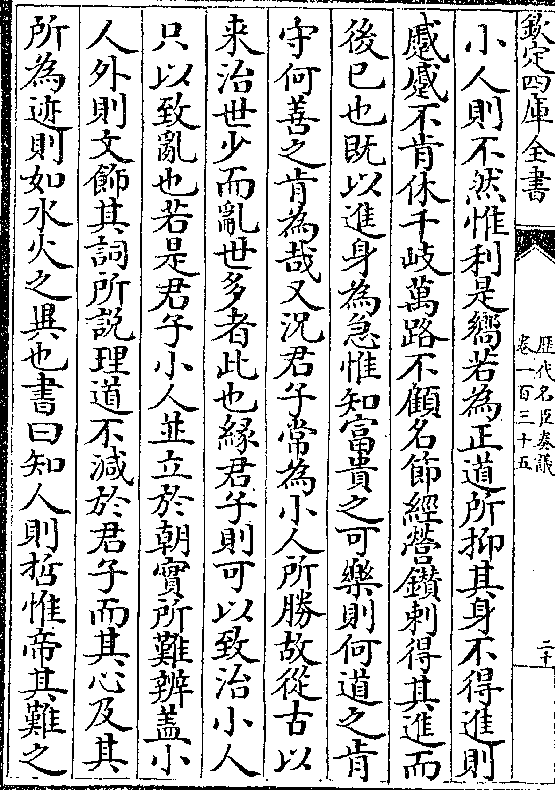 欽定四庫全書
歷代名臣奏議
卷一百三十五
二十
小人則不然惟利是嚮若為正道所抑其身不得進則
慼慼不肯休千岐萬路不顧名節經營鑽刺得其進而
後已也既以進身為急惟知富貴之可樂則何道之肯
守何善之肯為哉又況君子常為小人所勝故從古以
来治世少而亂世多者此也緣君子則可以致治小人
只以致亂也若是君子小人並立於朝實所難辨盖小
人外則文飾其詞所説理道不減於君子而其心及其
所為迹則如水火之異也書曰知人則哲惟帝其難之